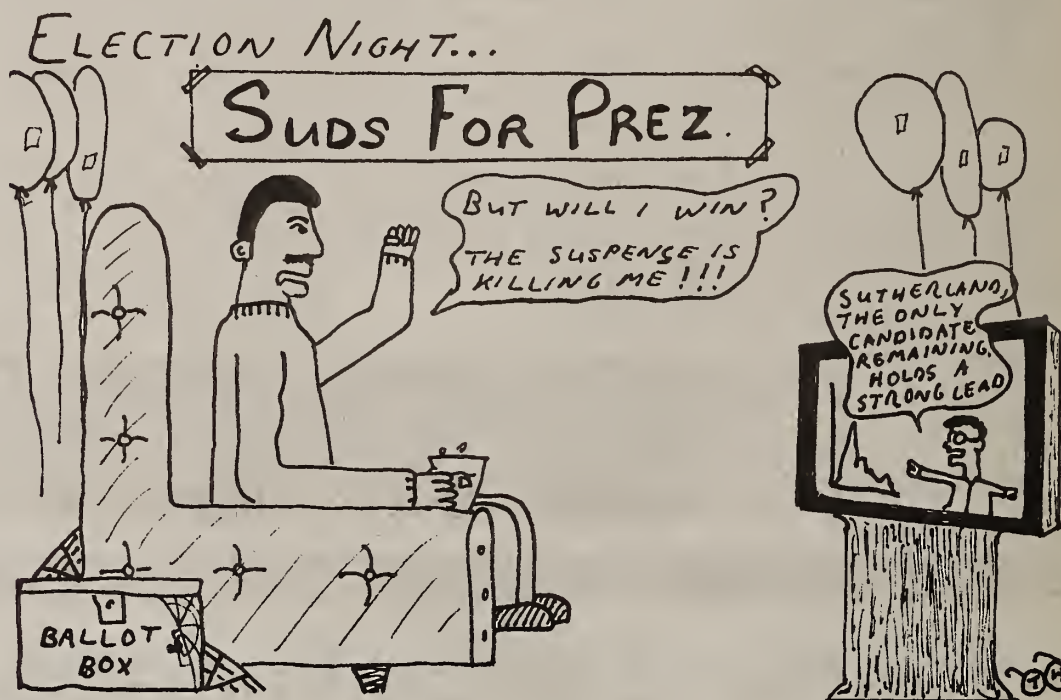 ELECTION NIGHT...
SUDS FOR PREZ.
BUT WILL I WIN?
THE SUSPENSE IS
KILLING ME!!!
SUTHERLAND,
THE ONLY
CANDIDATE
REMAINING,
HOLDS A
STRONG LEAD
BALLOT
BOX